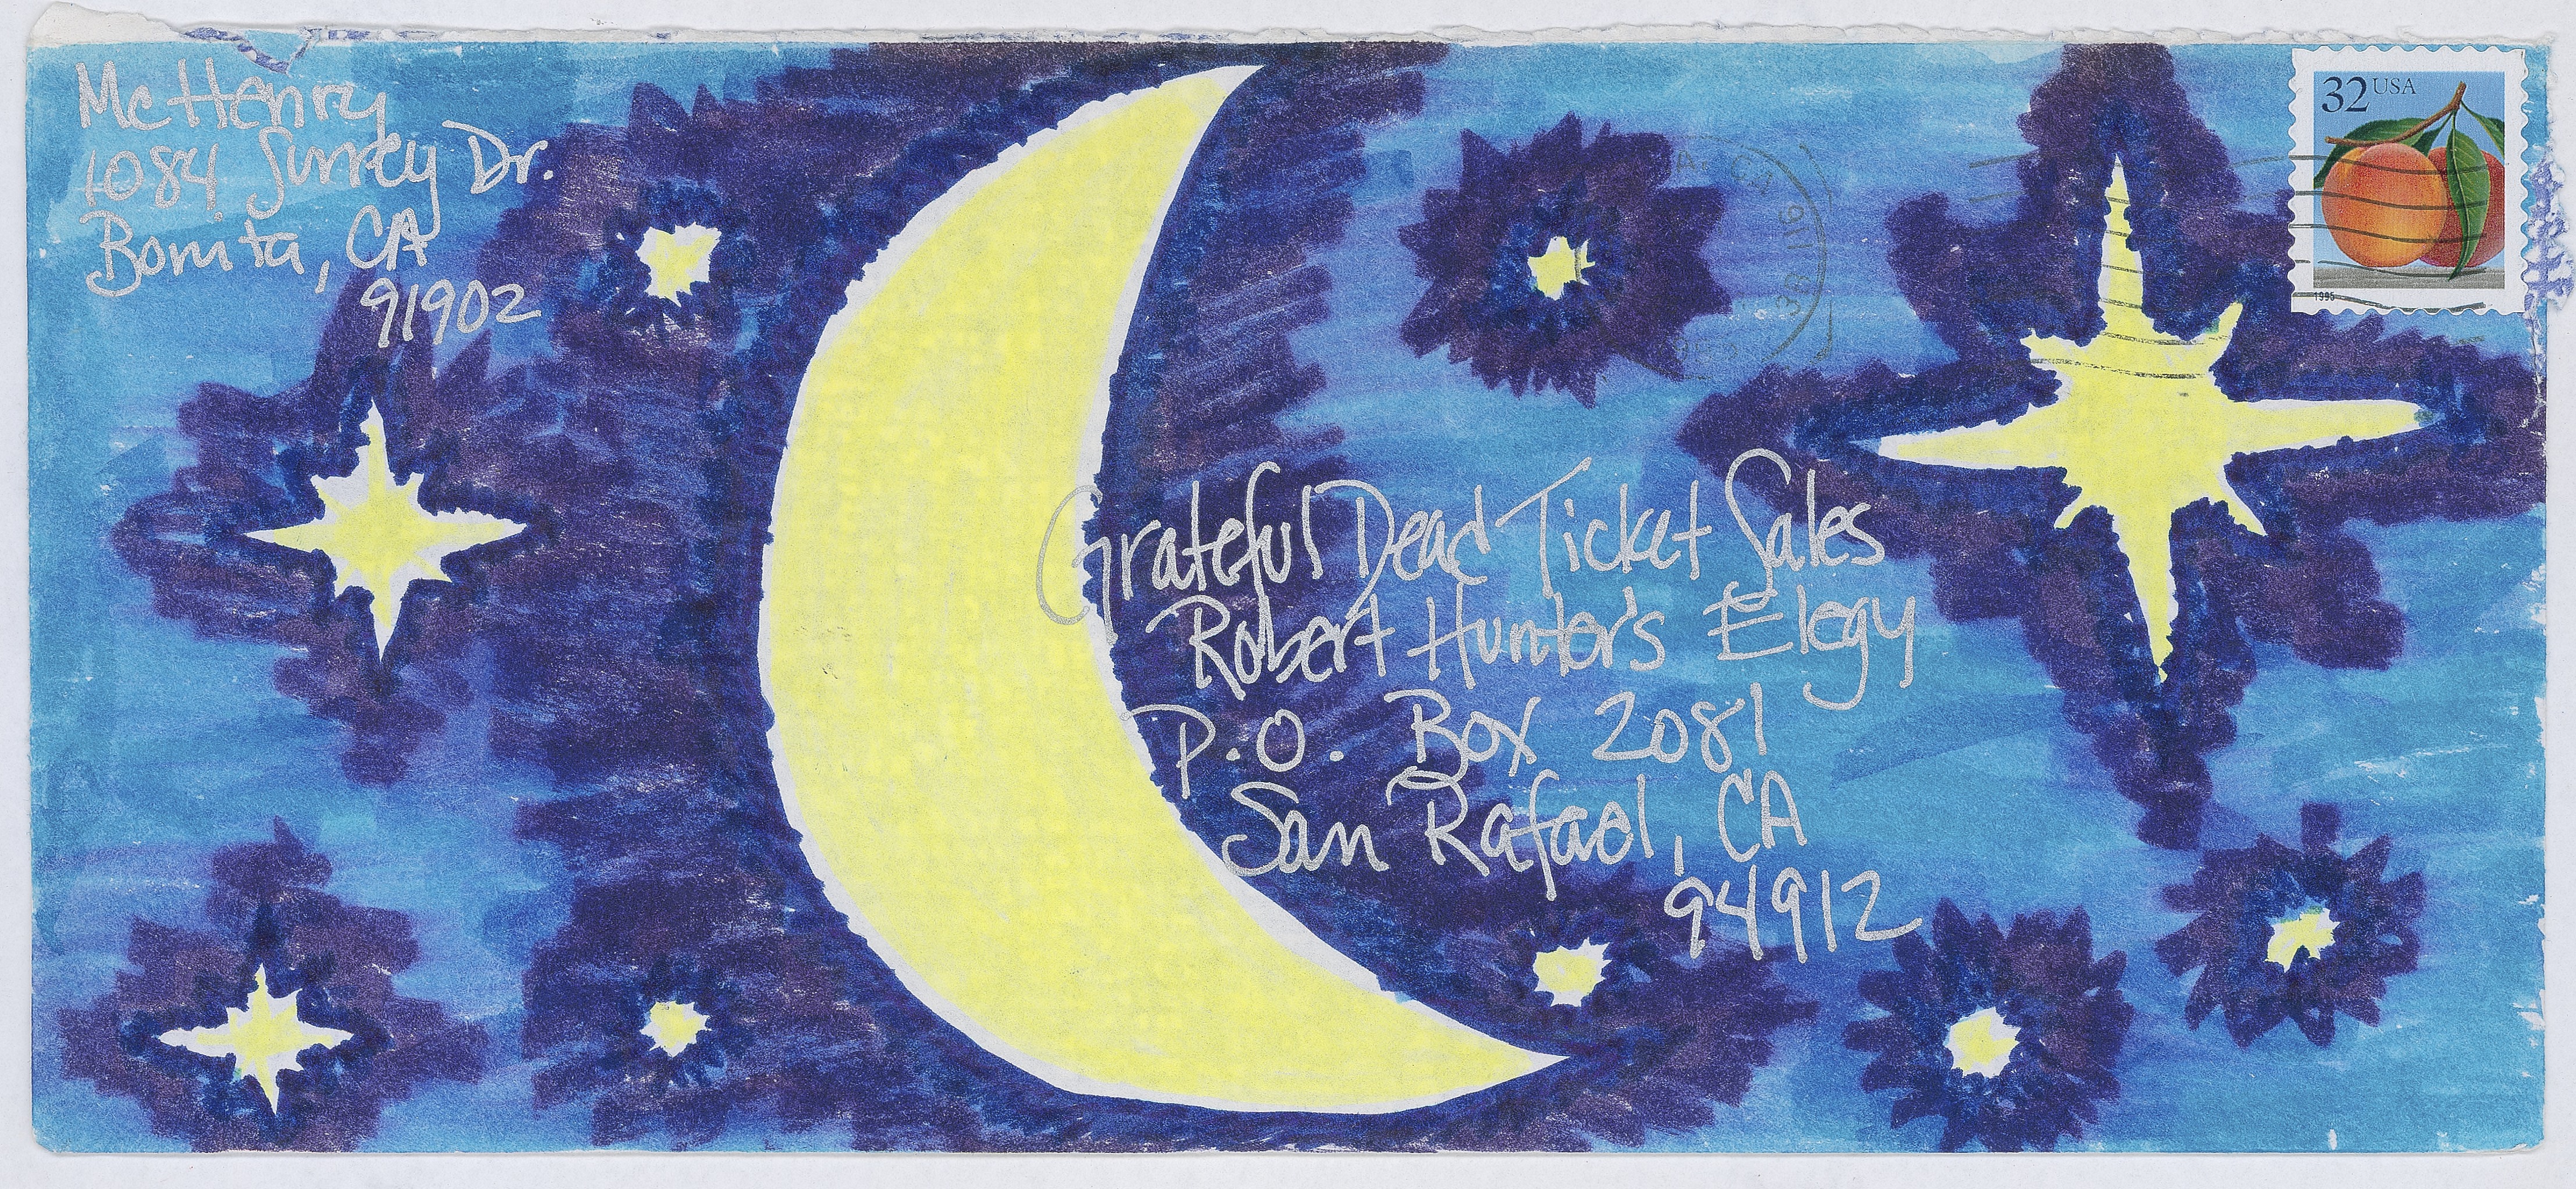 McHenry
1084 Surrey Dr.
Bonita, CA
91902
32 USA
1995
Grateful Dead Ticket Sales
Robert Hunter's Elegy
P.O. Box 2081
San Rafael, CA
94912